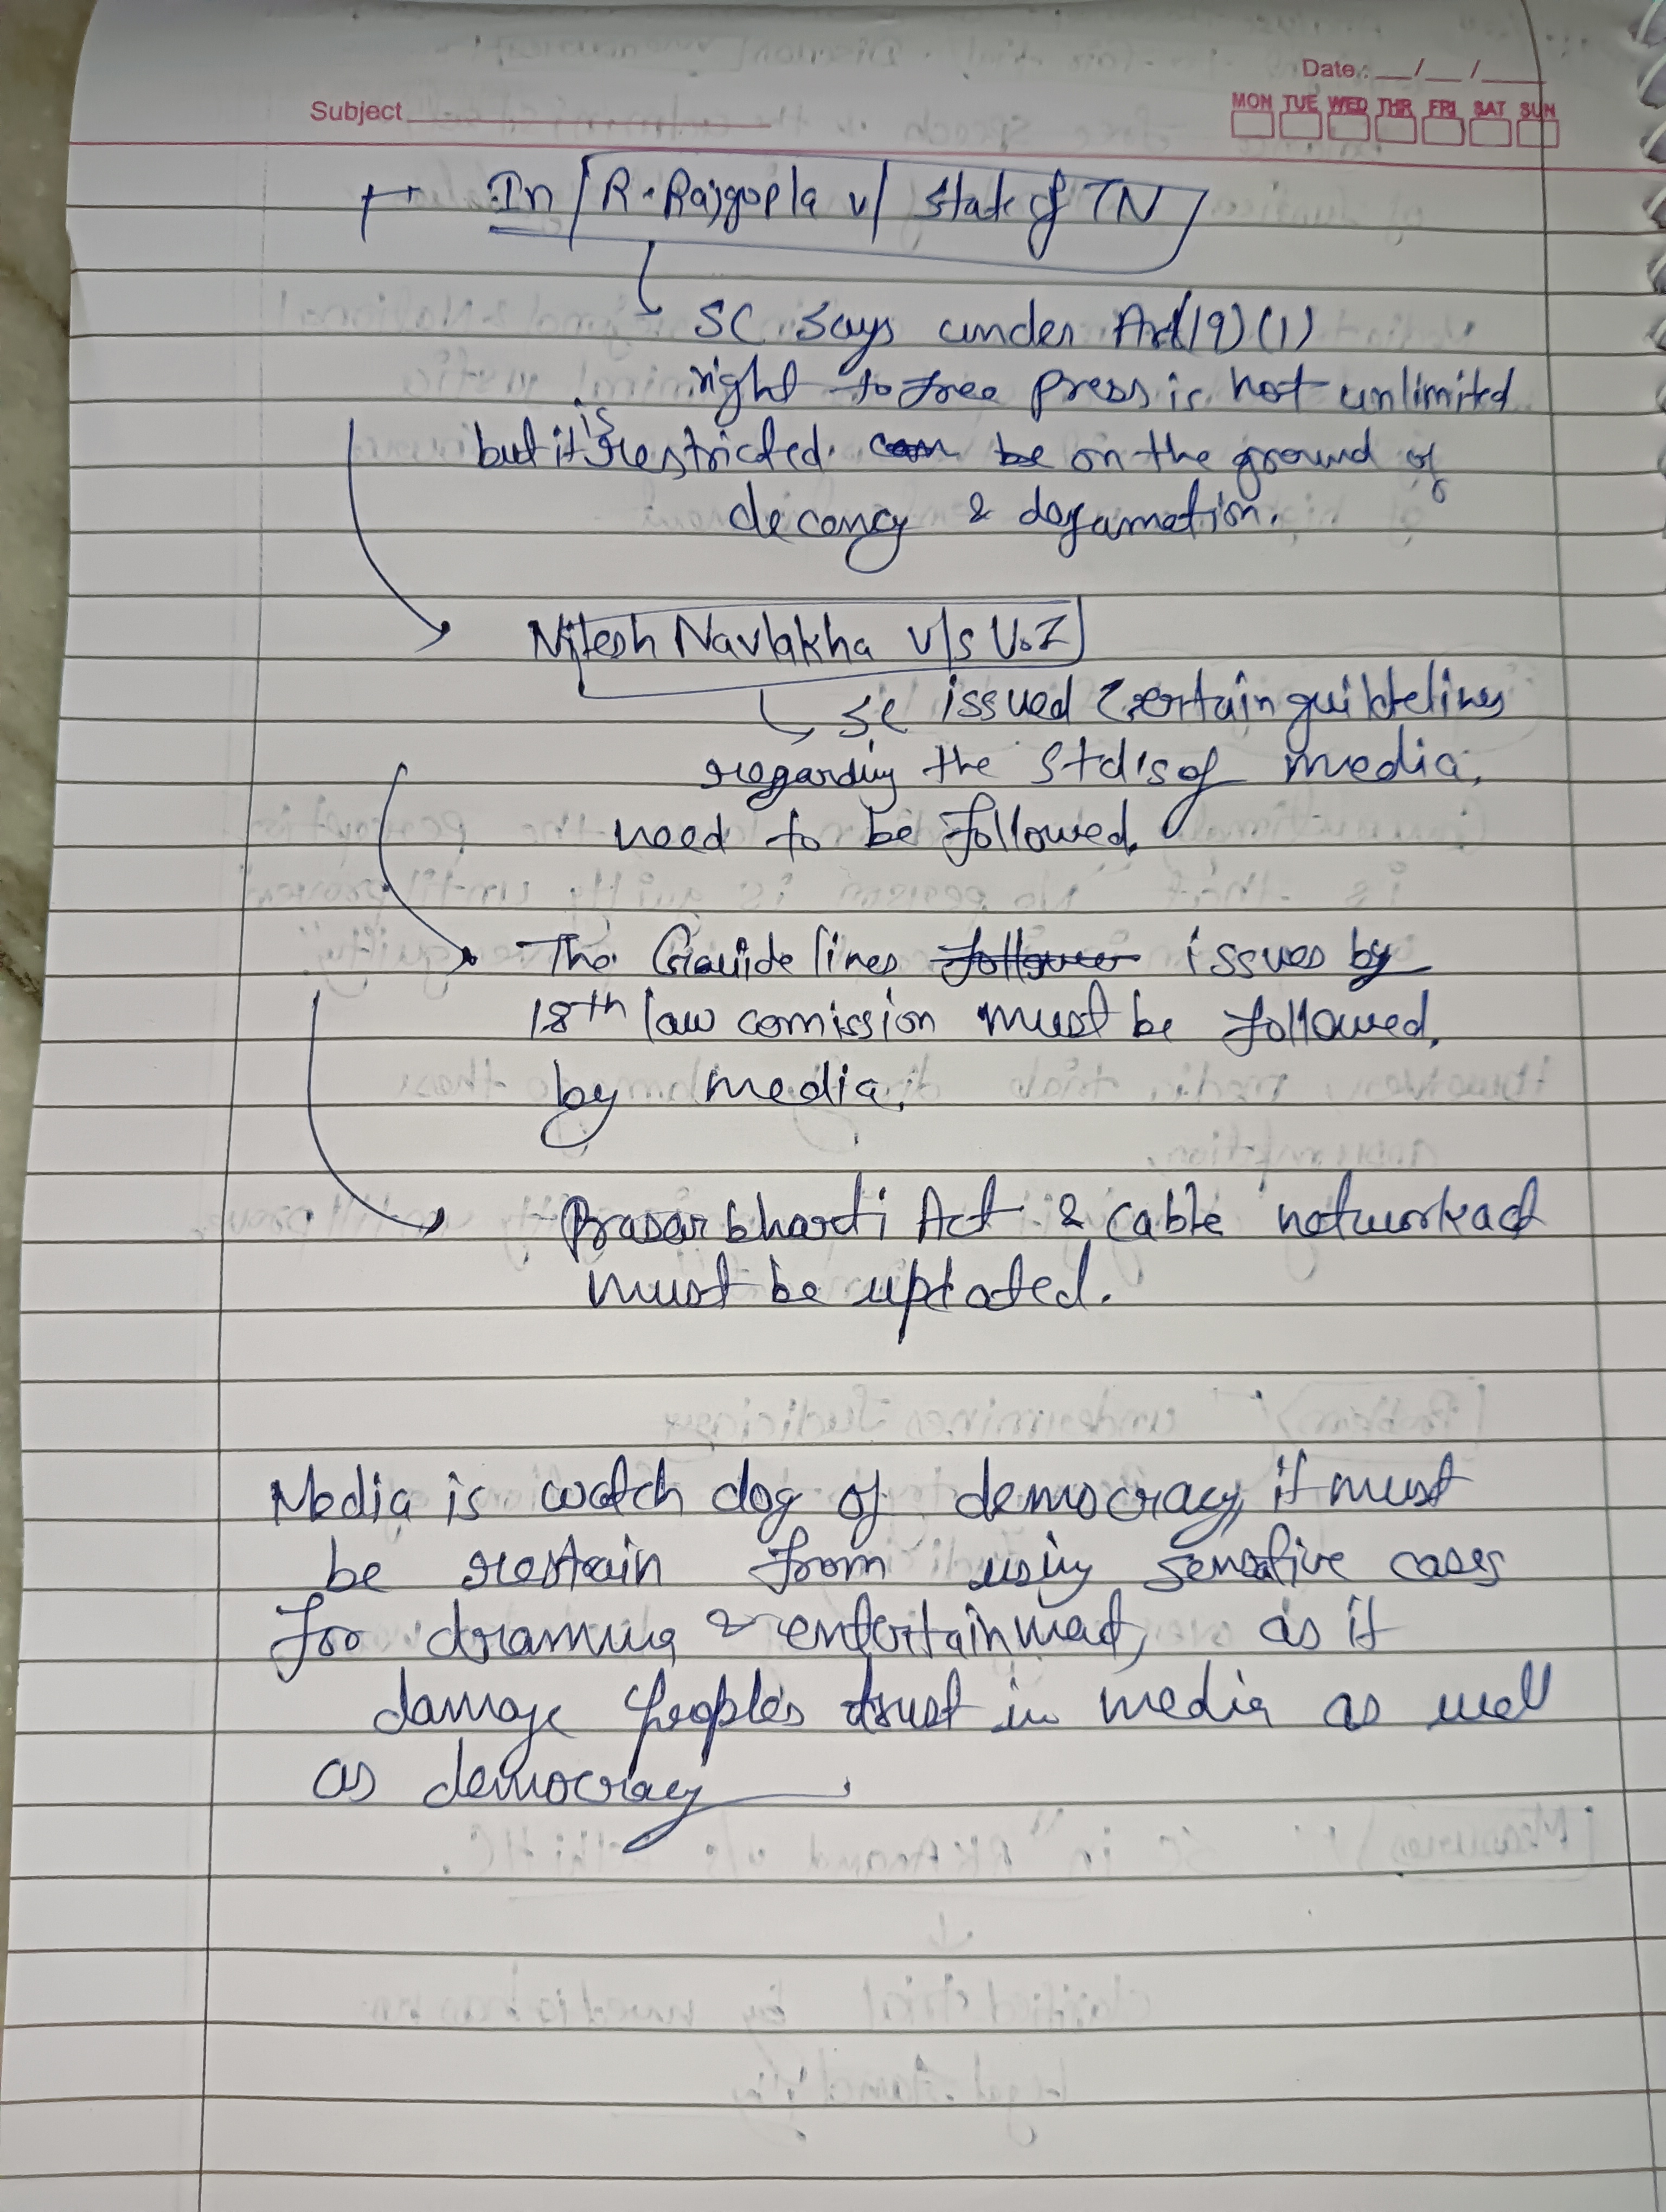 Date.: __/__/____
Subject
MON TUE WED THR FRI SAT SUN
In R. Rajgopla v/ State of TN
SC says under Art(19)(1)
right to free press is not unlimited
but it is restricted. be on the ground of
decancy & defamation.
Nitesh Navlakha v/s U.I
SC issued certain guildtelines
regarding the Std's of media,
need to be followed.
The Guide lines follower issues by
18th law comission must be followed.
by media.
Prasar bharti Act & cable network act
must be uptated.
Media is watch dog of democracy, it must
be restrain from using sensative cases
for dramma & entertainment, as it
damage people's trust in media as well
as democracy